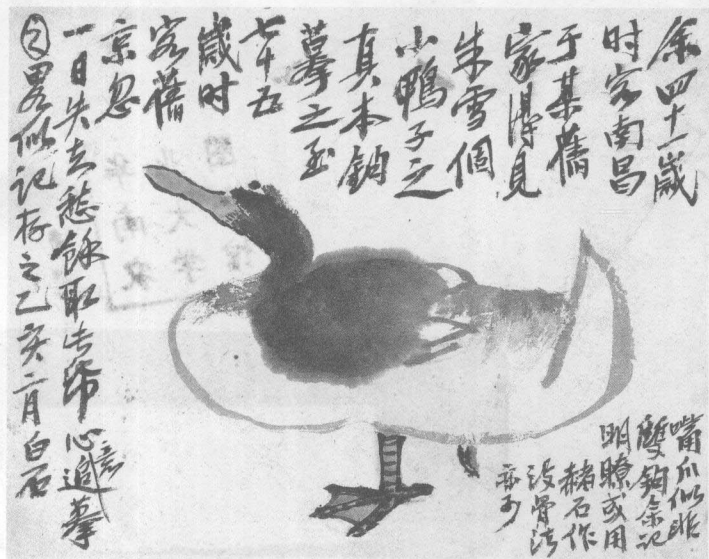 余四十一歲
时客南昌
于某舊
家得見
朱雪個
小鴨子之
真本鉤
摹之至
七十五
歲时
客舊
京忽
一日失去愁餘取此㡧心意追摹
畧似記存之乙亥二月白石
嘴爪似非
雙鉤余記
明瞭或用
赭石作
沒骨法
亦可